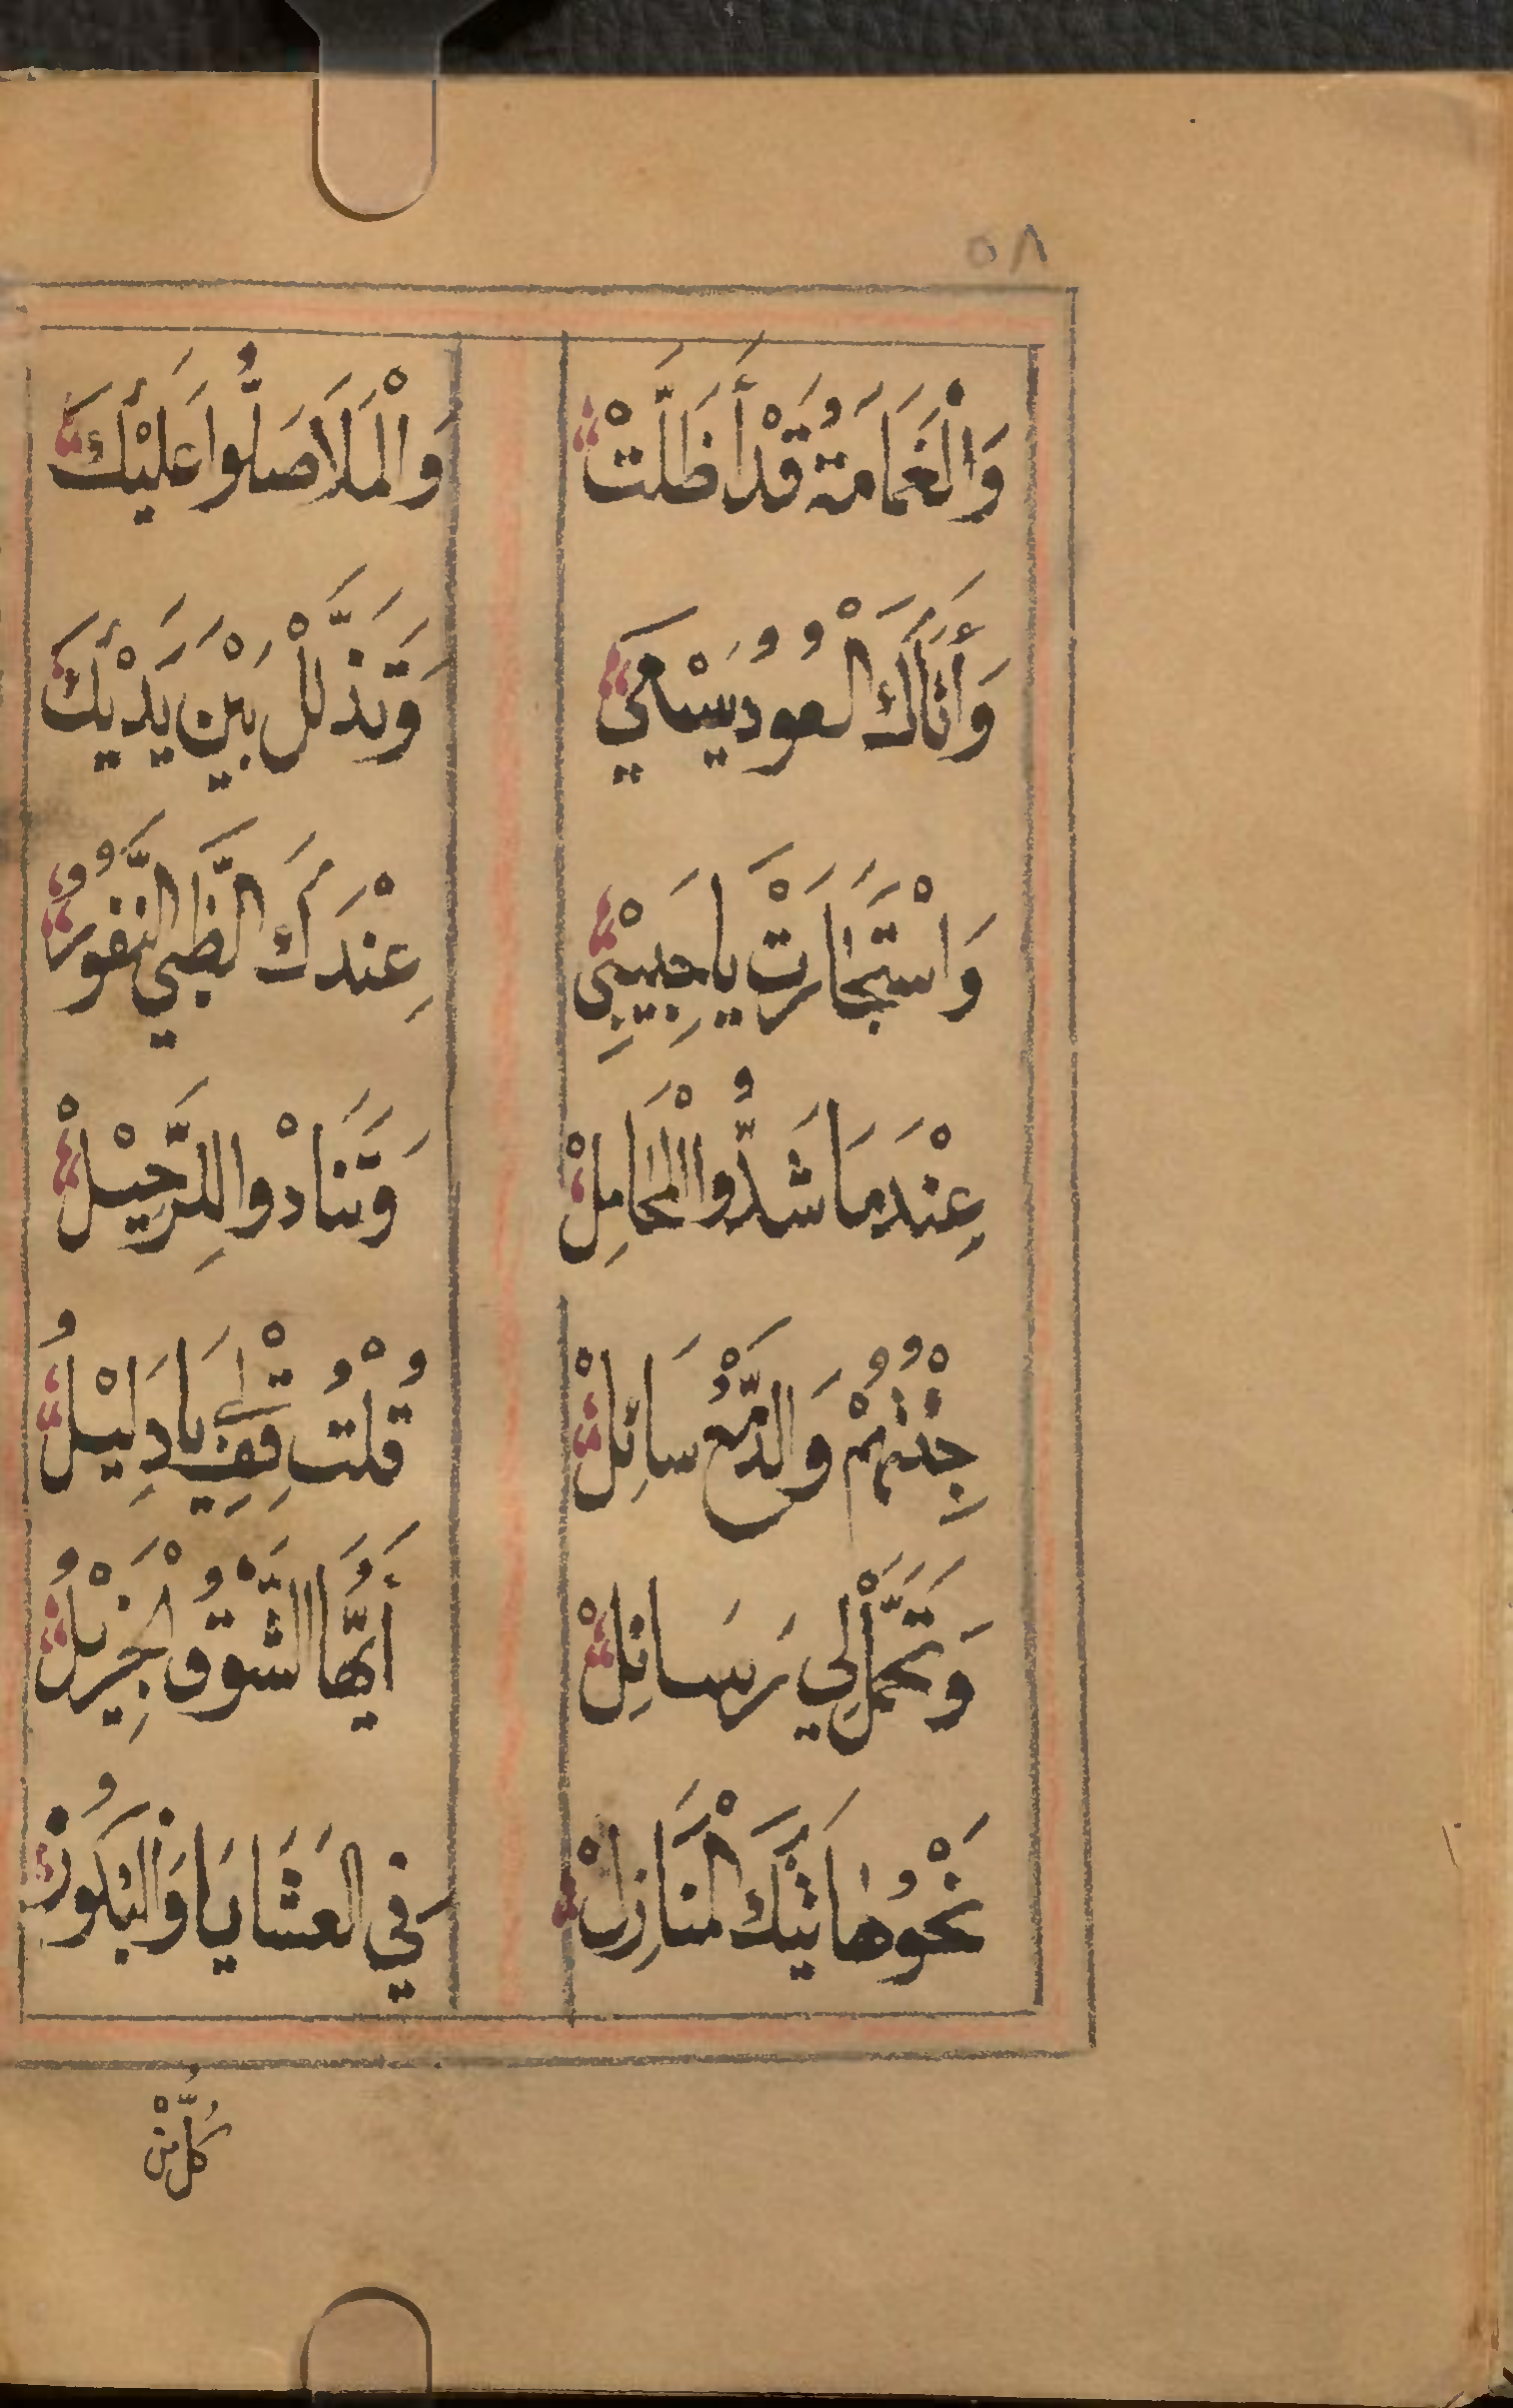 ٥٨
وَالْغَمَامَةُ قَدْ أَظَلَّتْ وَالْمَلَا صَلُّوا عَلَيْكَ
وَأَتَاكَ الْعُودُ يَسْعَي وَتَذَلَّلْ بَيْنَ يَدَيْكَ
وَاسْتَجَارَتْ يَا حَبِيبِي عِنْدَكَ الظَّبِيُ النَّفُورُ
عِنْدَمَا شَدُّوا الْمَحَامِلْ وَتَنَادَوْا لِلرَّحِيْلْ
جِئْتُهُمْ وَالدَّمْعُ سَائِلْ قُلْتُ قِفْ لِي يَا دَلِيْلُ
وَتَحَمَّلْ لِي رَسَائِلْ أَيُّهَا الشَّوْقُ الْجَزِيْلُ
نَحْوُ هَاتِيْكَ الْمَنَازِلْ فِي العَشَايَا وَالْبُكُورْ
كُلُّ مَنْ